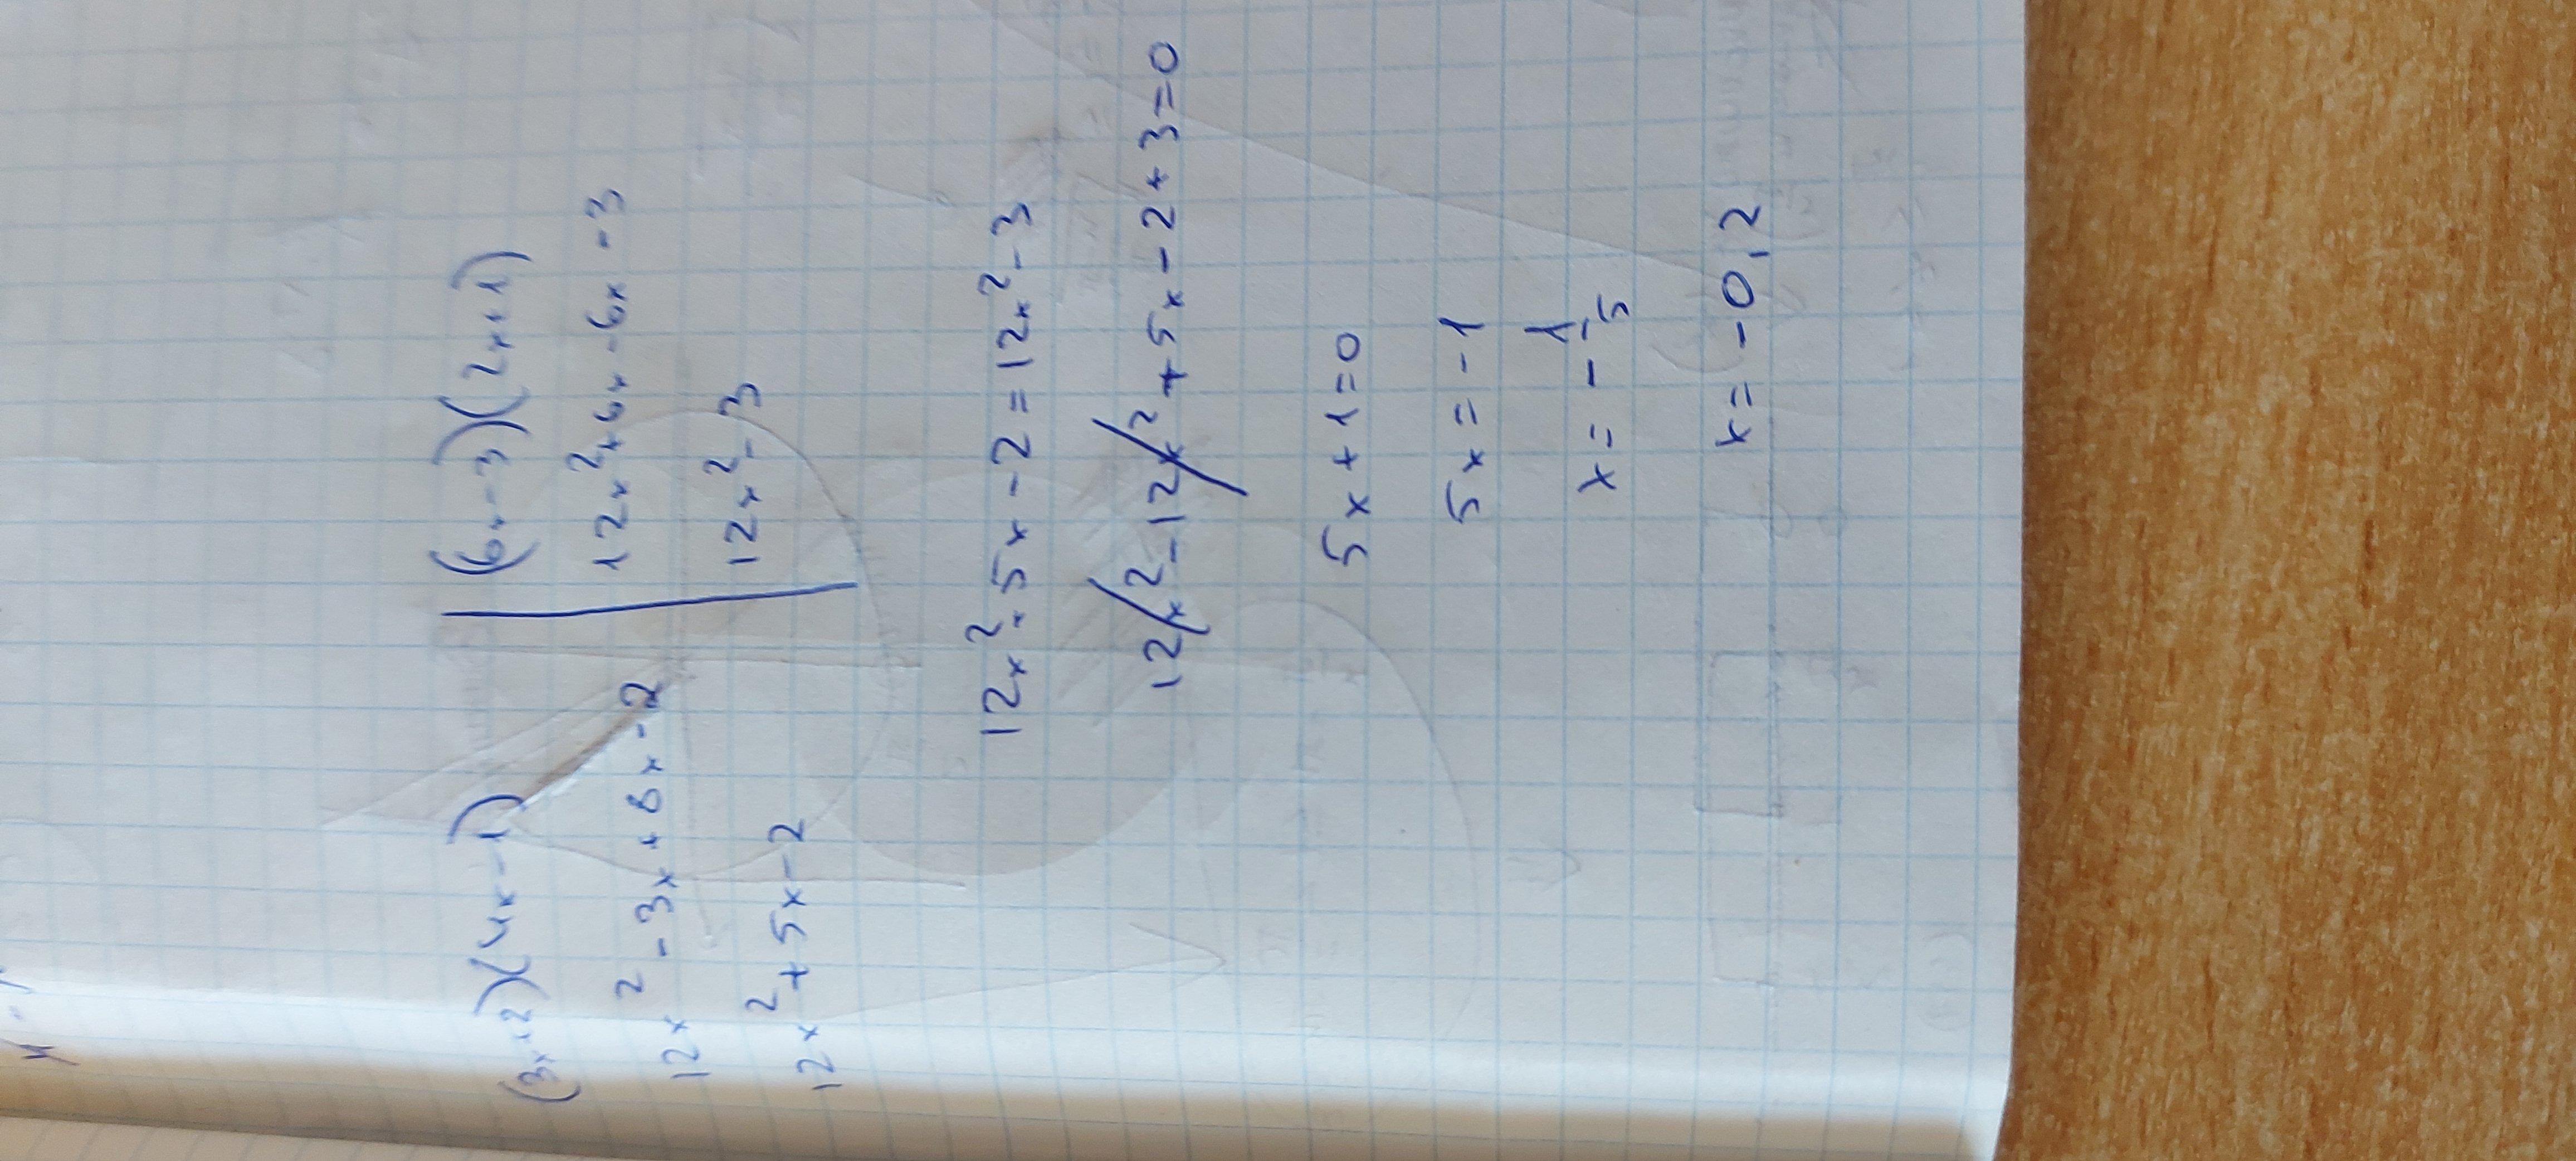 (3x+2)(4x-1) | (6x-3)(2x+1)
12x²-3x+8x-2 | 12x²+6x-6x-3
12x²+5x-2 | 12x²-3
12x²+5x-2=12x²-3
12x²-12x²+5x-2+3=0
5x+1=0
5x=-1
x=-1/5
x=-0,2